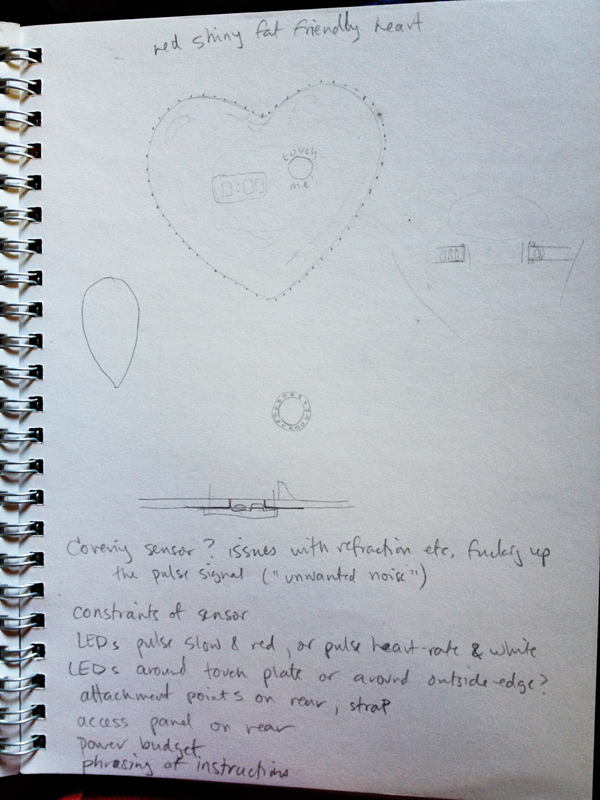 red shiny fat friendly heart
touch
me
0:00
Covering sensor? issues with refraction etc. fucking up
the pulse signal ("unwanted noise")
constraints of sensor
LEDs pulse slow & red, or pulse heart-rate & white
LEDs around touch plate or around outside-edge?
attachment points on rear, strap
access panel on rear
power budget
phrasing of instructions